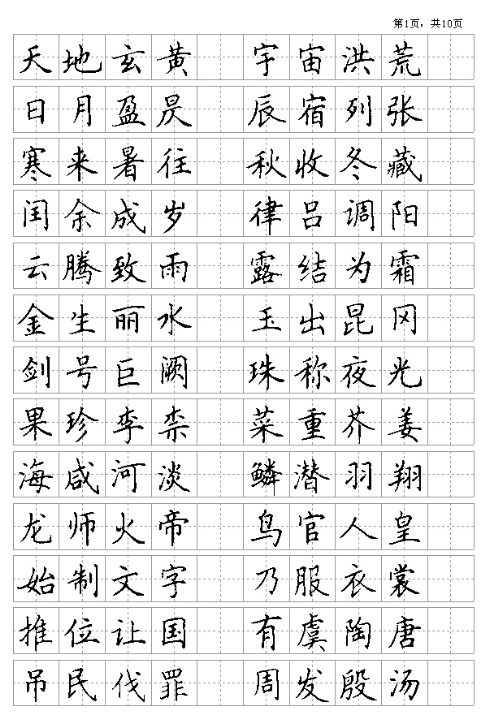 第1页，共10页
天地玄黄 宇宙洪荒
日月盈昃 辰宿列张
寒来暑往 秋收冬藏
闰余成岁 律吕调阳
云腾致雨 露结为霜
金生丽水 玉出昆冈
剑号巨阙 珠称夜光
果珍李柰 菜重芥姜
海咸河淡 鳞潜羽翔
龙师火帝 鸟官人皇
始制文字 乃服衣裳
推位让国 有虞陶唐
吊民伐罪 周发殷汤